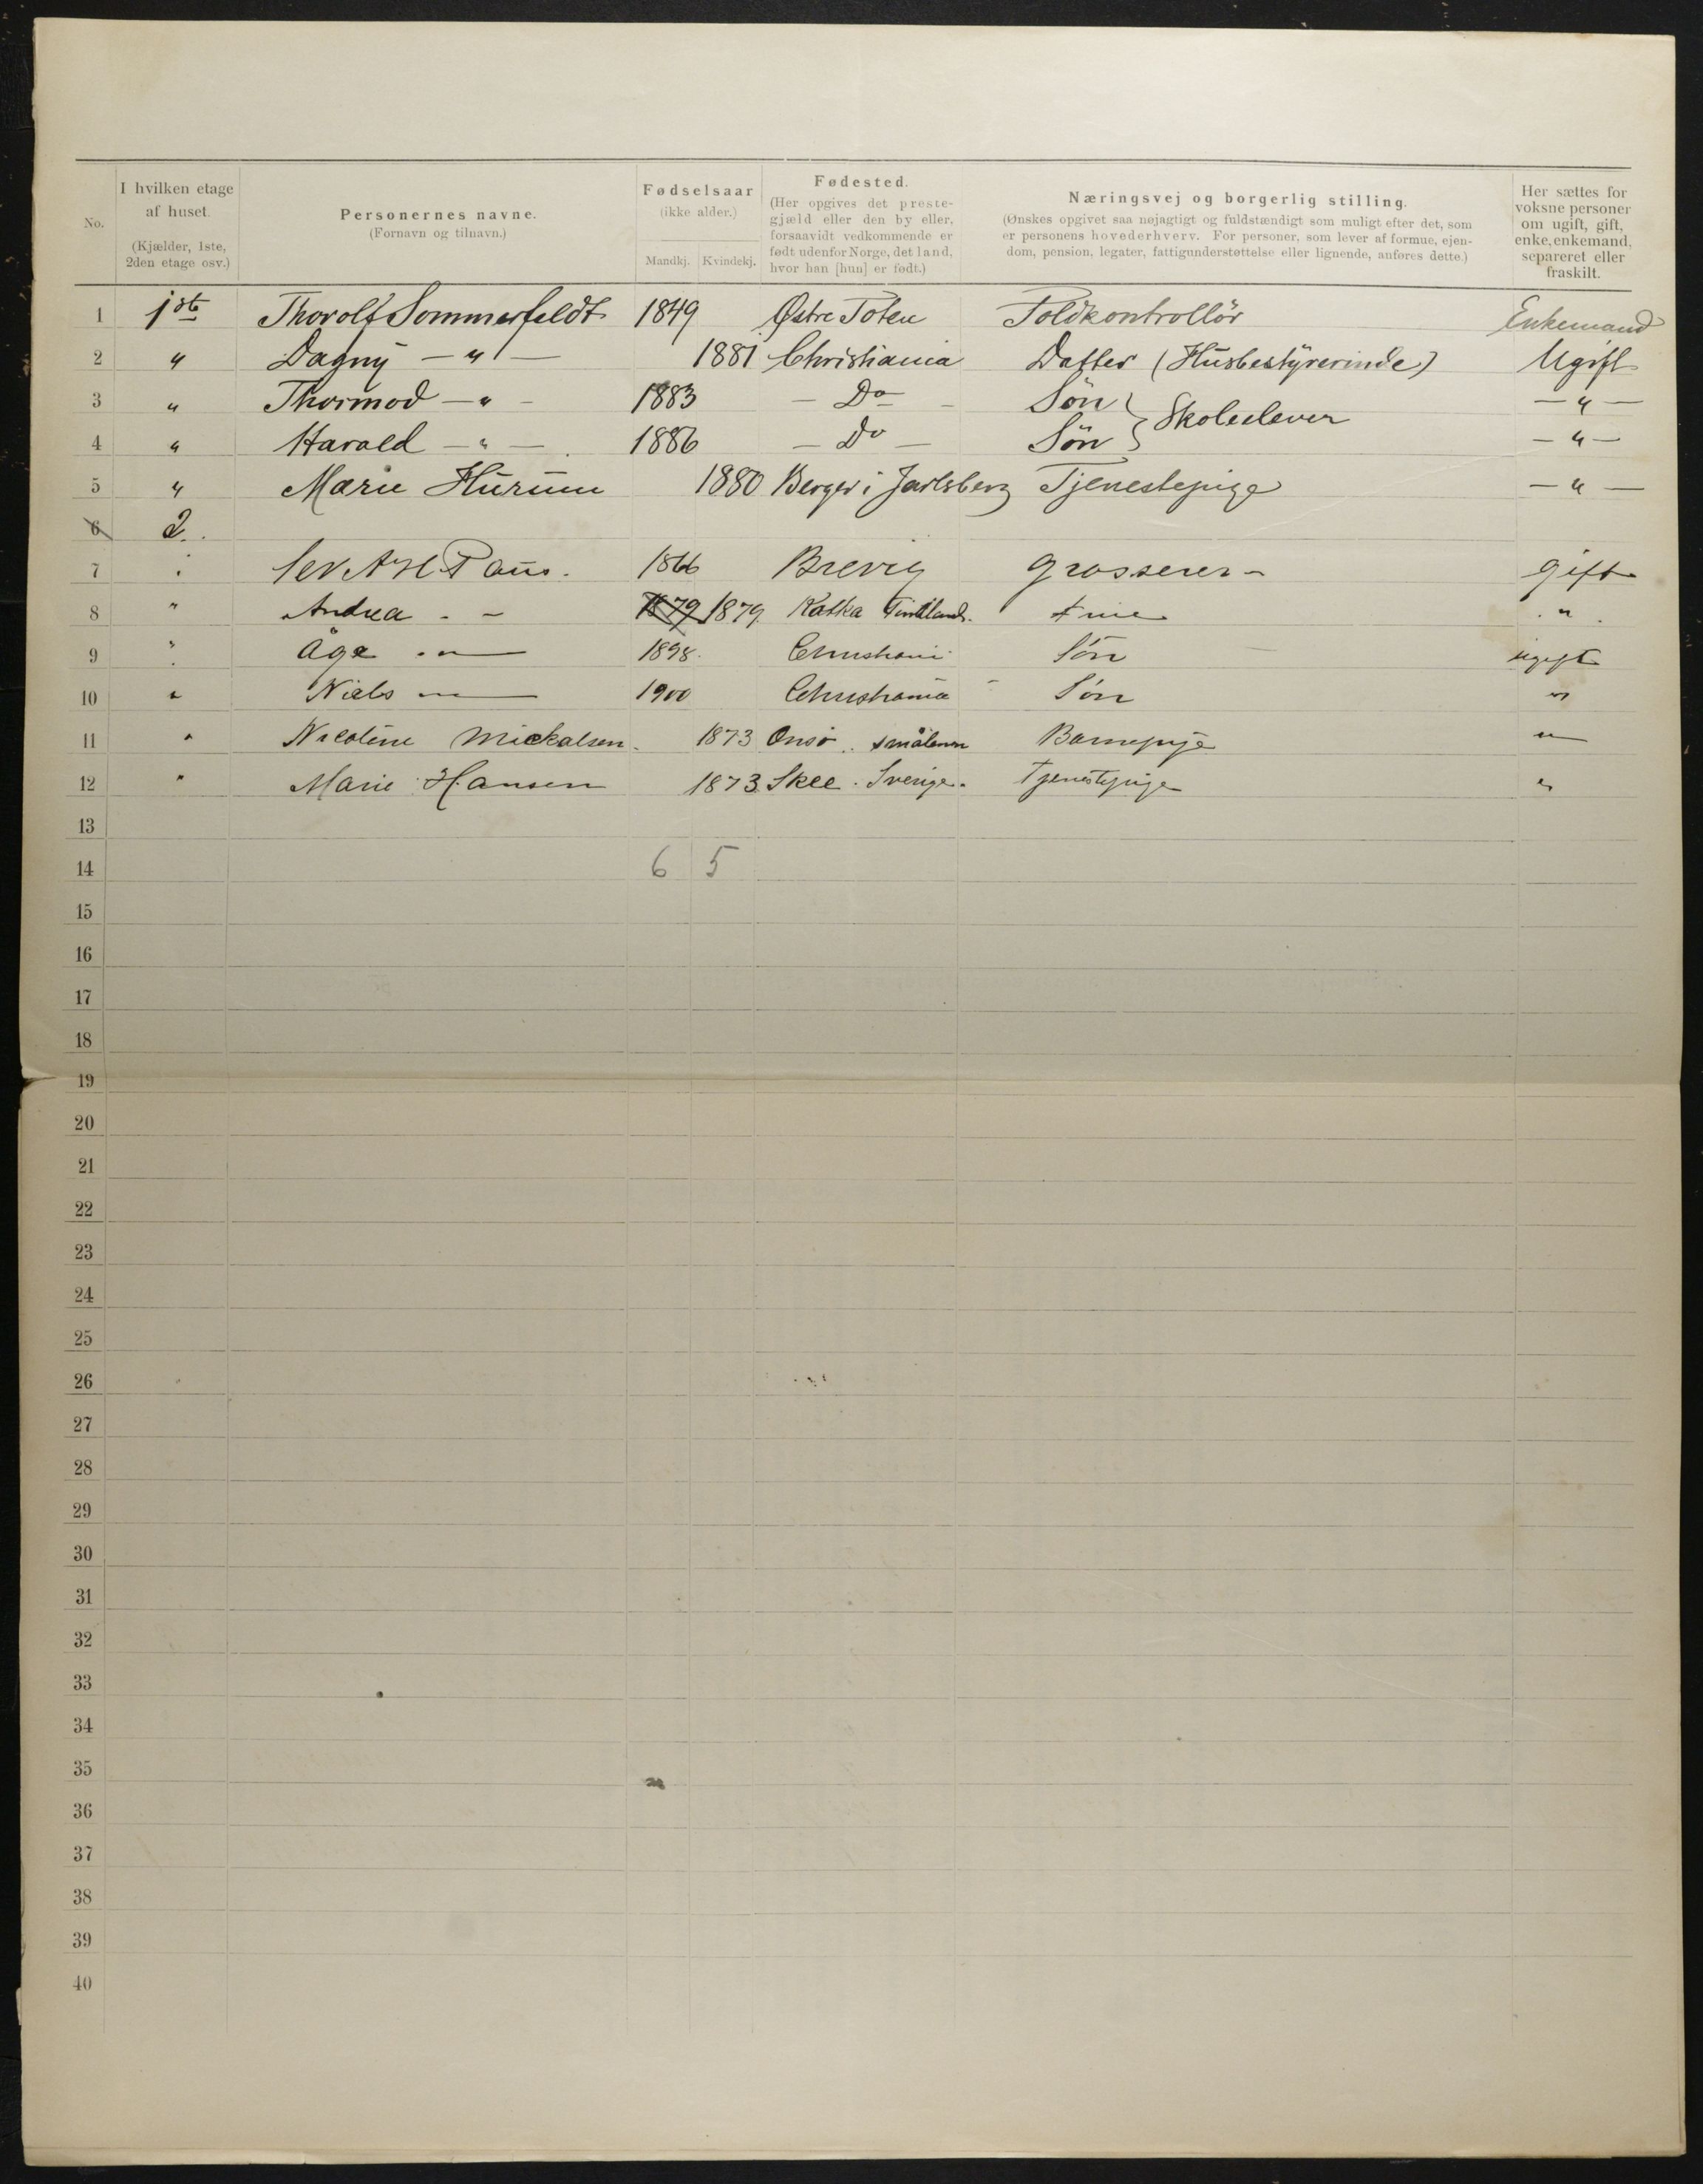 No. | I hvilken etage af huset. (Kjælder, 1ste, 2den etage osv.) | Personernes navne. (Fornavn og tilnavn.) | Fødselsaar (ikke alder.) Mandkj. Kvindekj. | Fødested. (Her opgives det prestegjæld eller den by eller, forsaavidt vedkommende er født udenfor Norge, det land, hvor han [hun] er født.) | Næringsvej og borgerlig stilling. (Ønskes opgivet saa nøjagtigt og fuldstændigt som muligt efter det, som er personens hovederhverv. For personer, som lever af formue, ejendom, pension, legater, fattigunderstøttelse eller lignende, anføres dette.) | Her sættes for voksne personer om ugift, gift, enke, enkemand, separeret eller fraskilt.
1 1ste Thorolf Sommerfeldt 1849 Østre Toten Toldkontrollör Enkemand
2 " Dagny — " — 1881 Christiania Datter (Husbestyrerinde) Ugift
3 " Thormod — " — 1883 — Do — Sön } Skoleelever — " —
4 " Harald — " — 1886 — Do — Sön } — " —
5 " Marie Hurum 1880 Berger i Jarlsberg Tjenestepige — " —
6 2.
7 " Paus. 1866 Brevig Grosserer - gift
8 " Andrea - - 1879 1879 Kotka Finnland. "
9 " Åge - " — 1898. Christiania Søn ugift
10 " Niels " — 1900 Christiania Søn "
11 " Nicoline Mickalsen. 1873 Onsø. Smålenene Barnepige "
12 " Marie Hansen 1873 Skee. Sverige. Tjenestepige "
13
14 6 5
15
16
17
18
19
20
21
22
23
24
25
26
27
28
29
30
31
32
33
34
35
36
37
38
39
40